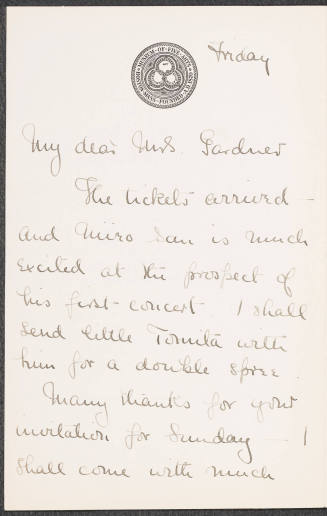 MUSEUM OF FINE ARTS BOSTON MASS. FOUNDED A.D. 1870
Friday
My dear Mrs. Gardner
The tickets arrived –
and Miro San is much
excited at the prospect of
his first concert. I shall
send little Tomita with
him for a double spree.
Many thanks for your
invitation for Sunday – I
shall come with much